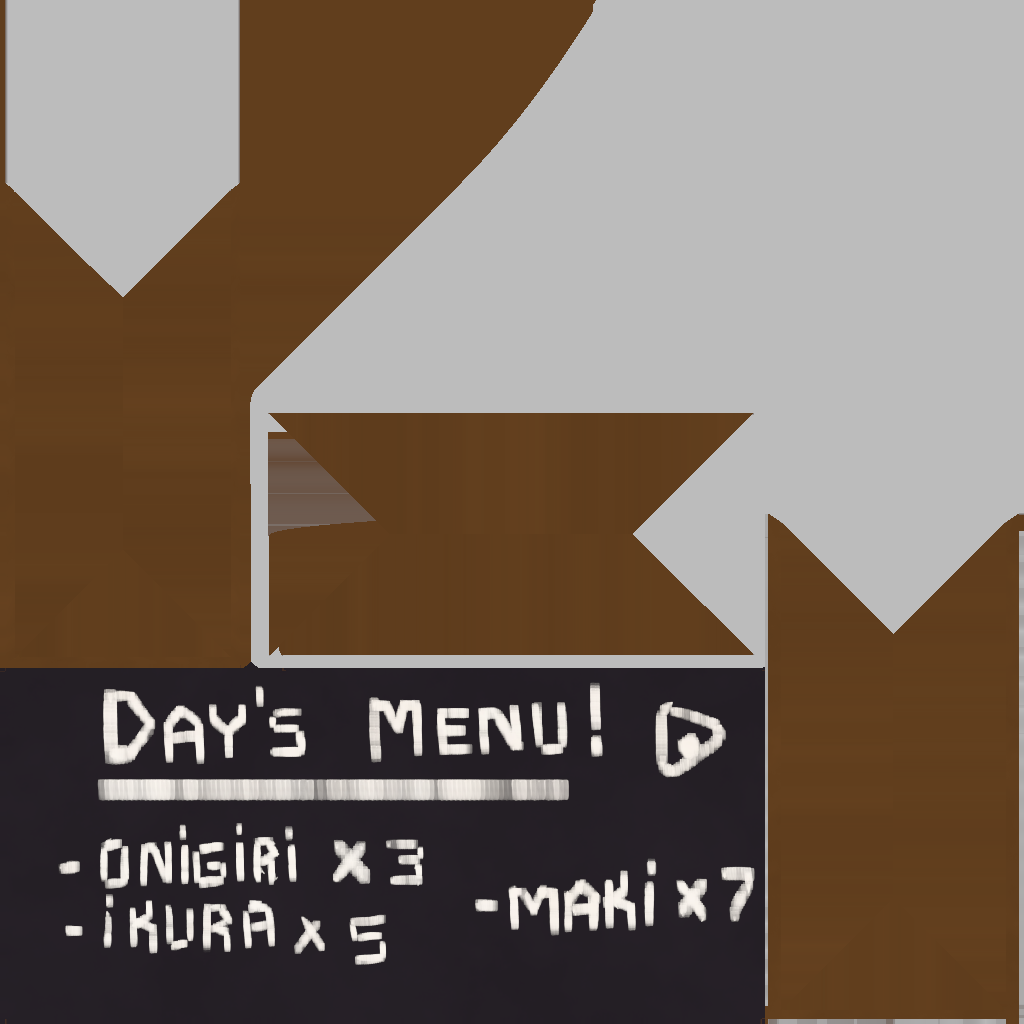 DAY'S MENU!
- ONiGiRi x 3
- iKURA x 5
- MAKi x 7